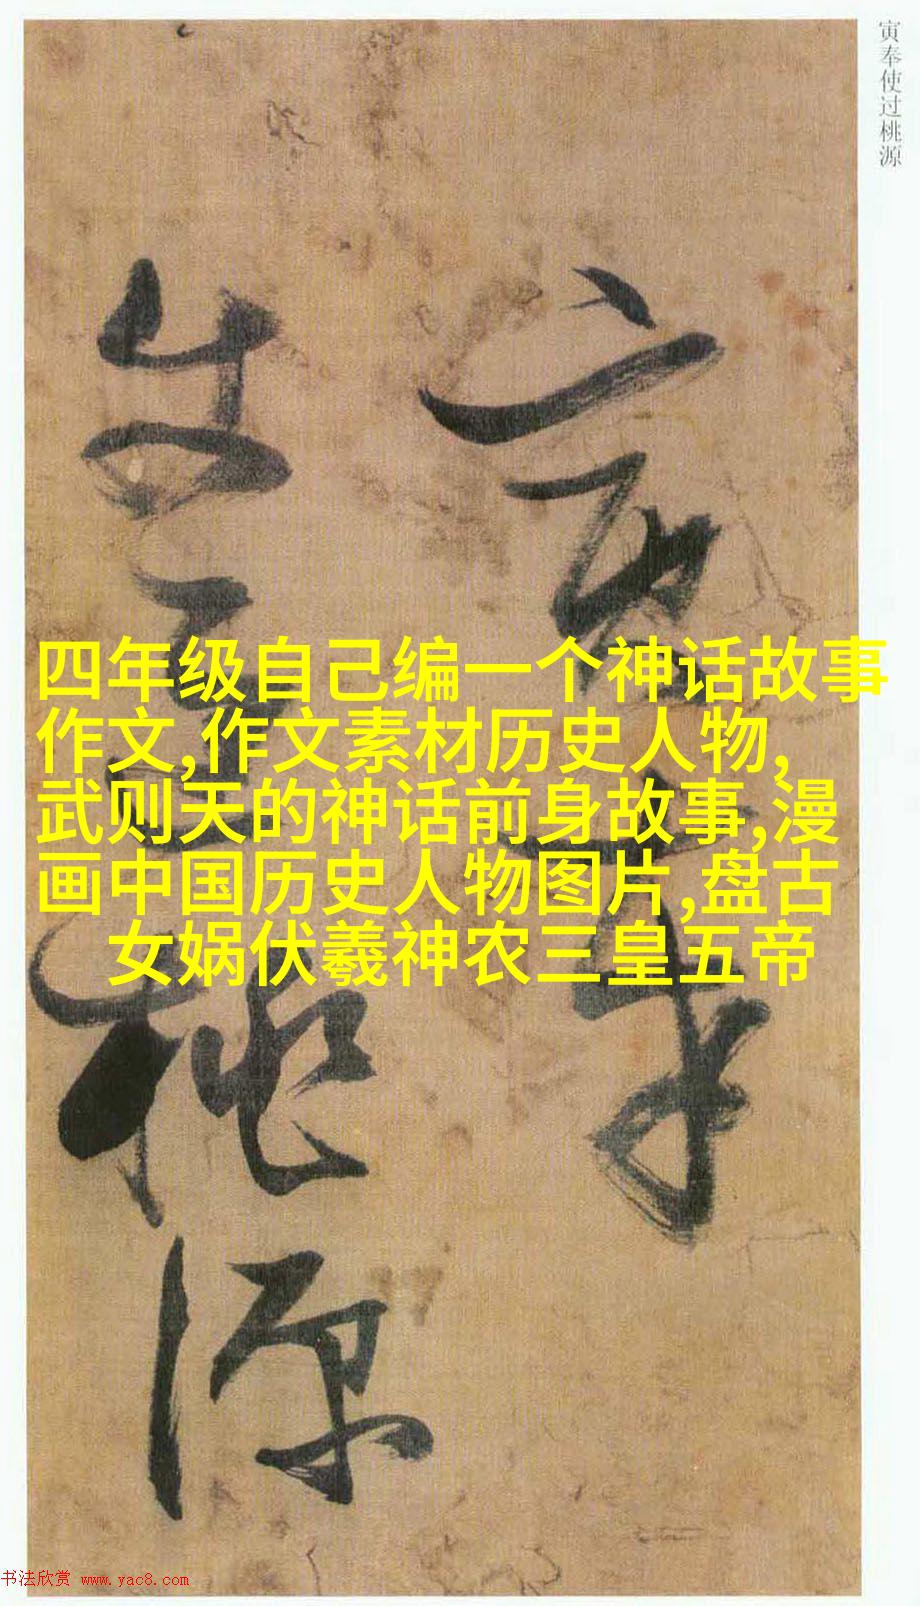 寅奉使过桃源
寅奉使
过桃源
四年级自己编一个神话故事
作文,作文素材历史人物,
武则天的神话前身故事,漫
画中国历史人物图片,盘古
女娲伏羲神农三皇五帝
书法欣赏 www.yac8.com